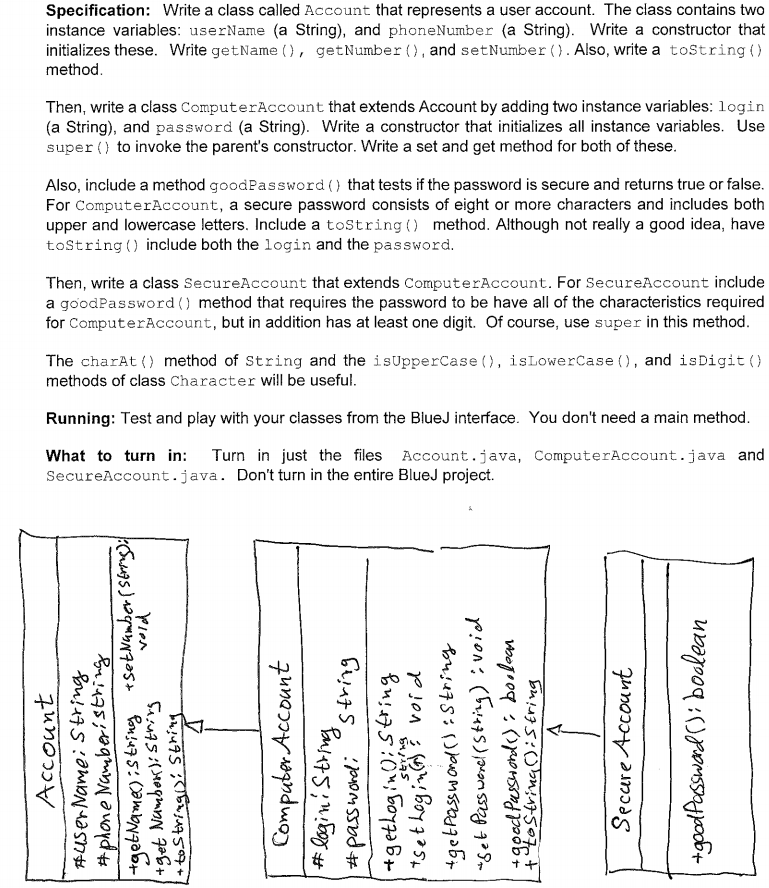 Specification: Write a class called Account that represents a user account. The class contains two
instance variables: userName (a String), and phoneNumber (a String). Write a constructor that
initializes these. Write getName(), getNumber(), and setNumber(). Also, write a toString()
method.
Then, write a class ComputerAccount that extends Account by adding two instance variables: login
(a String), and password (a String). Write a constructor that initializes all instance variables. Use
super() to invoke the parent's constructor. Write a set and get method for both of these.
Also, include a method goodPassword() that tests if the password is secure and returns true or false.
For ComputerAccount, a secure password consists of eight or more characters and includes both
upper and lowercase letters. Include a toString() method. Although not really a good idea, have
toString() include both the login and the password.
Then, write a class SecureAccount that extends ComputerAccount. For SecureAccount include
a goodPassword() method that requires the password to be have all of the characteristics required
for ComputerAccount, but in addition has at least one digit. Of course, use super in this method.
The charAt() method of String and the isUpperCase(), isLowerCase(), and isDigit()
methods of class Character will be useful.
Running: Test and play with your classes from the BlueJ interface. You don't need a main method.
What to turn in: Turn in just the files Account.java, ComputerAccount.java and
SecureAccount.java. Don't turn in the entire BlueJ project.
Account
#userName: String
#phoneNumber: string
+getName(): String +setNumber(String): void
+getNumber(): String
+toString(): String
Computer Account
#login: String
#password: String
+getLogin(): String
+setLogin(string): void
+getPassword(): String
-setPassword(String): void
+goodPassword(): boolean
+toString(): String
Secure Account
+goodPassword(): boolean